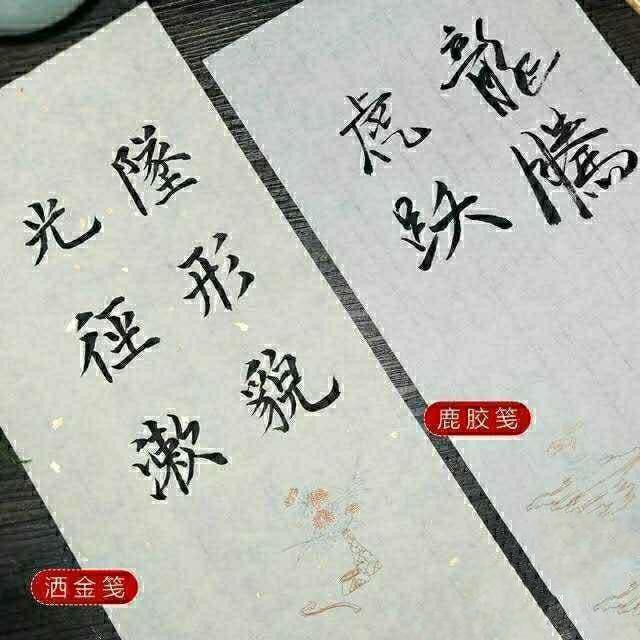 龍騰
虎跃
墜形貌
光徑漱
鹿胶笺
洒金笺